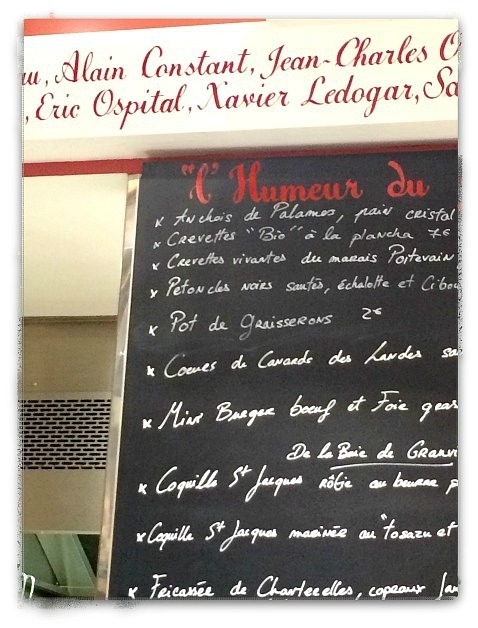 Alain Constant, Jean-Charles O
, Eric Ospital, Xavier Ledogar, Sa
"l'Humeur du
x Anchois de Palamos, pain cristal
x Crevettes "Bio" à la plancha 7€
x Crevettes vivantes du marais Poitevin
x Petoncles noirs sautés, échalotte et Cibou
x Pot de Graisserons 2€
x Coeurs de Canards des Landes sa
x Mini Burger boeuf et Foie gras
De la Baie de Granv
x Coquille St Jacques rôtie au beurre p
x Coquille St Jacques marinée au "tosazu et
x Fricassée de Chanterelles, copeaux Jam